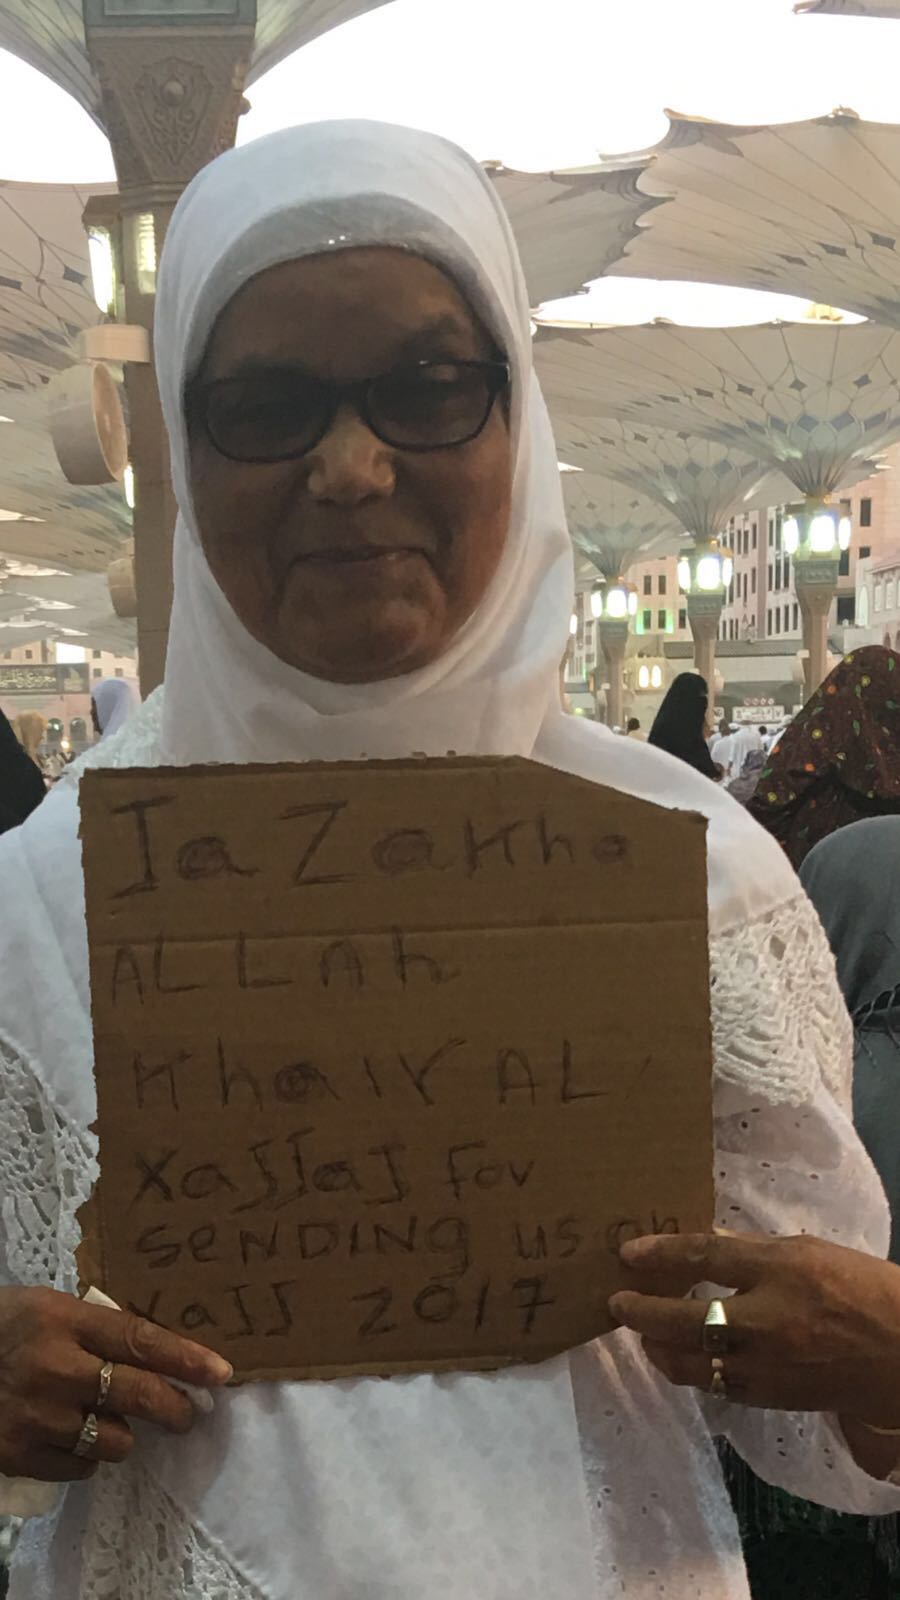 JaZakha
ALLAh
KhaIr AL
XaJJaJ For
SeNDINg us on
XaJJ 2017